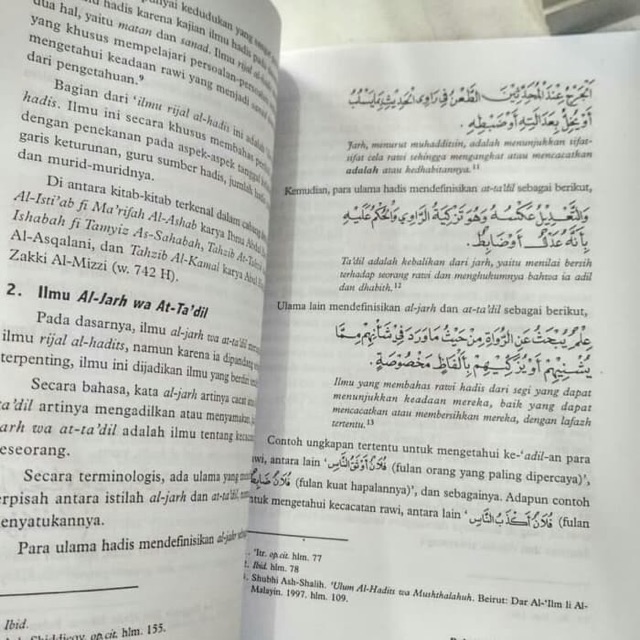 punyai kedudukan yang sangat
dua hal, yaitu matan dan sanad. Ilmu rijal al-
yang khusus mempelajari persoalan-persoalan
mengetahui keadaan rawi yang menjadi sanad
dari pengetahuan.⁹
Bagian dari 'ilmu rijal al-hadis ini adalah
hadis. Ilmu ini secara khusus membahas
dengan penekanan pada aspek-aspek tanggal
garis keturunan, guru sumber hadis, jumlah
dan murid-muridnya.
Di antara kitab-kitab terkenal dalam cabang
Al-Isti'ab fi Ma'rifah Al-Ashab karya Ibnu Abdul
Ishabah fi Tamyiz As-Sahabah, Tahzib At-
Al-Asqalani, dan Tahzib Al-Kamal karya Abul
Zakki Al-Mizzi (w. 742 H).
2. Ilmu Al-Jarh wa At-Ta'dil
Pada dasarnya, ilmu al-jarh wa at-ta'dil
ilmu rijal al-hadits, namun karena ia dipandang
terpenting, ilmu ini dijadikan ilmu yang berdiri
Secara bahasa, kata al-jarh artinya cacat
ta'dil artinya mengadilkan atau menyamakan,
arh wa at-ta'dil adalah ilmu tentang
eseorang.
Secara terminologis, ada ulama yang
erpisah antara istilah al-jarh dan at-ta'dil,
enyatukannya.
Para ulama hadis mendefinisikan al-jarh
Ibid.
op.cit. hlm. 155.
اَلْجَرْحُ عِنْدَ الْمُحَدِّثِيْنَ الطَّعْنُ فِي رَاوِى الْحَدِيْثِ بِمَا يَسْلُبُ
أَوْ يُخِلُّ بِعَدَالَتِهِ أَوْ ضَبْطِهِ.
Jarh, menurut muhadditsin, adalah menunjukkan sifat-
sifat cela rawi sehingga mengangkat atau mencacatkan
adalah atau kedhabitannya.¹¹
Kemudian, para ulama hadis mendefinisikan at-ta'dil sebagai berikut,
وَالتَّعْدِيْلُ عَكْسُهُ وَهُوَ تَزْكِيَةُ الرَّاوِي وَالْحُكْمُ عَلَيْهِ
بِأَنَّهُ عَدْلٌ أَوْ ضَابِطٌ.
Ta'dil adalah kebalikan dari jarh, yaitu menilai bersih
terhadap seorang rawi dan menghukumnya bahwa ia adil
dan dhabith.¹²
Ulama lain mendefinisikan al-jarh dan at-ta'dil sebagai berikut,
عِلْمٌ يُبْحَثُ عَنِ الرُّوَاةِ مِنْ حَيْثُ مَا وَرَدَ فِي شَأْنِهِمْ مِمَّا
يُشْنِيْهِمْ أَوْ يُزَكِّيْهِمْ بِأَلْفَاظٍ مَخْصُوْصَةٍ.
Ilmu yang membahas rawi hadis dari segi yang dapat
menunjukkan keadaan mereka, baik yang dapat
mencacatkan atau membersihkan mereka, dengan lafazh
tertentu.¹³
Contoh ungkapan tertentu untuk mengetahui ke-'adil-an para
wi, antara lain 'فُلَانٌ أَوْثَقُ النَّاسِ (fulan orang yang paling dipercaya)',
فُلَانٌ ضَابِطٌ (fulan kuat hapalannya)', dan sebagainya. Adapun contoh
tuk mengetahui kecacatan rawi, antara lain 'فُلَانٌ أَكْذَبُ النَّاسِ (fulan
'Itr. op.cit. hlm. 77
Ibid. hlm. 78
Shubhi Ash-Shalih. 'Ulum Al-Hadits wa Mushthalahuh. Beirut: Dar Al-'Ilm li Al-
Malayin. 1997. hlm. 109.